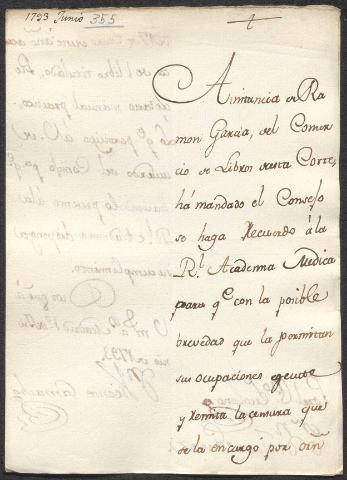 1793 Junio 355
A instancia de Ra
mon Garcia, del Comer
cio de Libros de esta Corte,
há mandado el Consejo
se haga Recuerdo á la
Rl. Academia Medica
para qe. con la posible
brevedad que la permitan
sus ocupaciones egecute
y remita la censura que
se la encargó por orñ